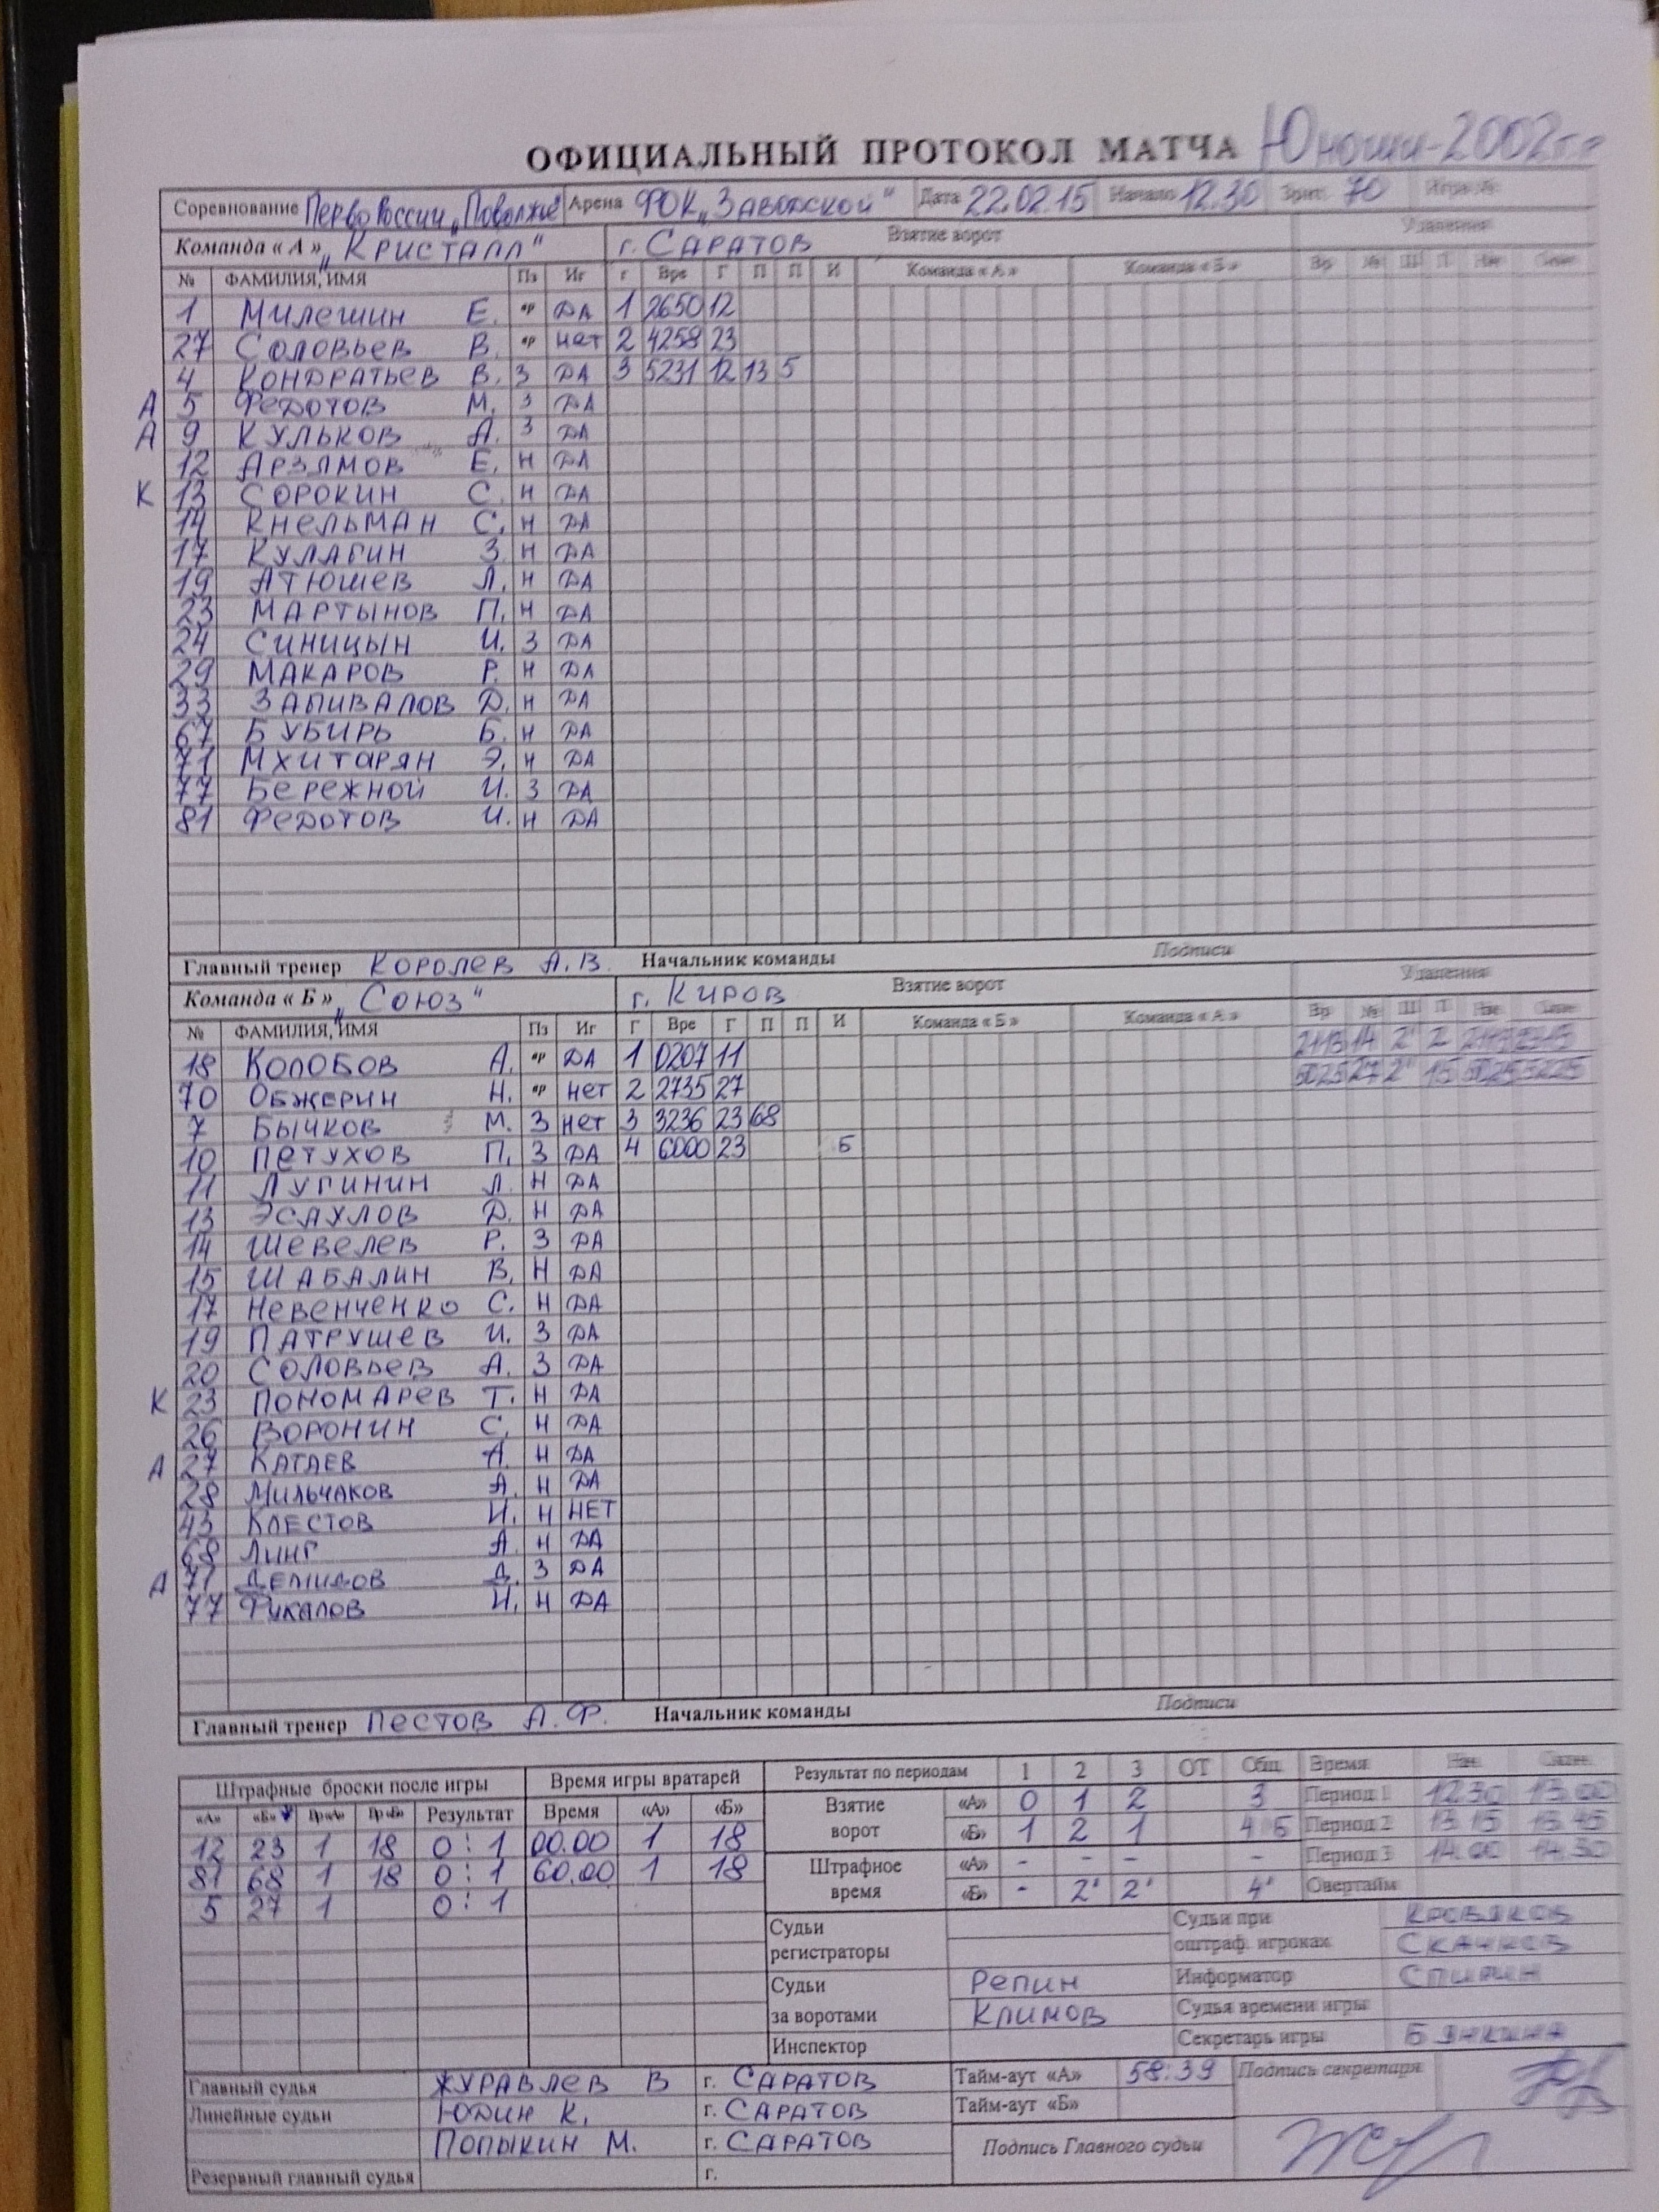 ОФИЦИАЛЬНЫЙ ПРОТОКОЛ МАТЧА Юноши-2002г.р
Соревнование Перво России „Поволжье" Арена ФОК „Заводской" Дата 22.02.15 Начало 12.30 Зрит. 70
Команда «А» „Кристалл" г. САРАТОВ Взятие ворот Удаления
№ ФАМИЛИЯ, ИМЯ Пз Иг Г Вре Г П П И Команда «А» Команда «Б» Вр № Ш П Нач Окон
1 Милешин Е. вр ДА 1 2650 12
27 Соловьев В. вр нет 2 4258 23
4 Кондратьев В. З ДА 3 5231 12 13 5
А 5 Федотов М. З ДА
А 9 Кульков А. З ДА
12 Арзамов Е. Н ДА
К 13 Сорокин С. Н ДА
14 Кнельман С. Н ДА
17 Кулагин З. Н ДА
19 Атюшев Л. Н ДА
23 Мартынов П. Н ДА
24 Синицын И. З ДА
29 Макаров Р. Н ДА
33 Запивалов Д. Н ДА
67 Бубирь Б. Н ДА
71 Мхитарян Э. Н ДА
77 Бережной И. З ДА
81 Федотов И. Н ДА
Главный тренер Королев А.В. Начальник команды Подписи
Команда «Б» „Союз" г. Киров Взятие ворот Удаления
№ ФАМИЛИЯ, ИМЯ Пз Иг Г Вре Г П П И Команда «Б» Команда «А» Вр № Ш П Нач Окон
18 Колобов А. вр ДА 1 0207 11 2113 14 2' 2 2113 2315
70 Обжерин Н. вр нет 2 2735 27 5025 27 2' 15 5025 5225
7 Бычков М. З нет 3 3236 23 68
10 Петухов П. З ДА 4 6000 23 Б
11 Лугинин Л. Н ДА
13 Эсаулов Д. Н ДА
14 Шевелев Р. З ДА
15 Шабалин В. Н ДА
17 Невенченко С. Н ДА
19 Патрушев И. З ДА
20 Соловьев А. З ДА
К 23 Пономарев Т. Н ДА
26 Воронин С. Н ДА
А 27 Катаев А. Н ДА
28 Мильчаков А. Н ДА
43 Клестов И. Н НЕТ
68 Линг А. Н ДА
А 71 Демидов Д. З ДА
77 Фикалов И. Н ДА
Главный тренер Пестов А.Ф. Начальник команды Подписи
Штрафные броски после игры Время игры вратарей Результат по периодам 1 2 3 ОТ Общ Время Нач Окон
«А» «Б» Вр«А» Вр«Б» Результат Время «А» «Б» Взятие ворот «А» 0 1 2 3 Период 1 12.30 13.00
12 23 1 18 0:1 00.00 1 18 «Б» 1 2 1 4 Б Период 2 13.15 13.45
81 68 1 18 0:1 60.00 1 18 Штрафное время «А» - - - - Период 3 14.00 14.30
5 27 1 0:1 «Б» - 2' 2' 4' Овертайм
Судьи регистраторы Судьи при оштраф. игроках Кровяков
Скачков
Судьи за воротами Репин Информатор Спирин
Климов Судья времени игры
Инспектор Секретарь игры
Главный судья Журавлев В г. САРАТОВ Тайм-аут «А» 58:39 Подпись секретаря
Линейные судьи Юдин К. г. САРАТОВ Тайм-аут «Б»
Попыкин М. г. САРАТОВ Подпись Главного судьи
Резервный главный судья г.